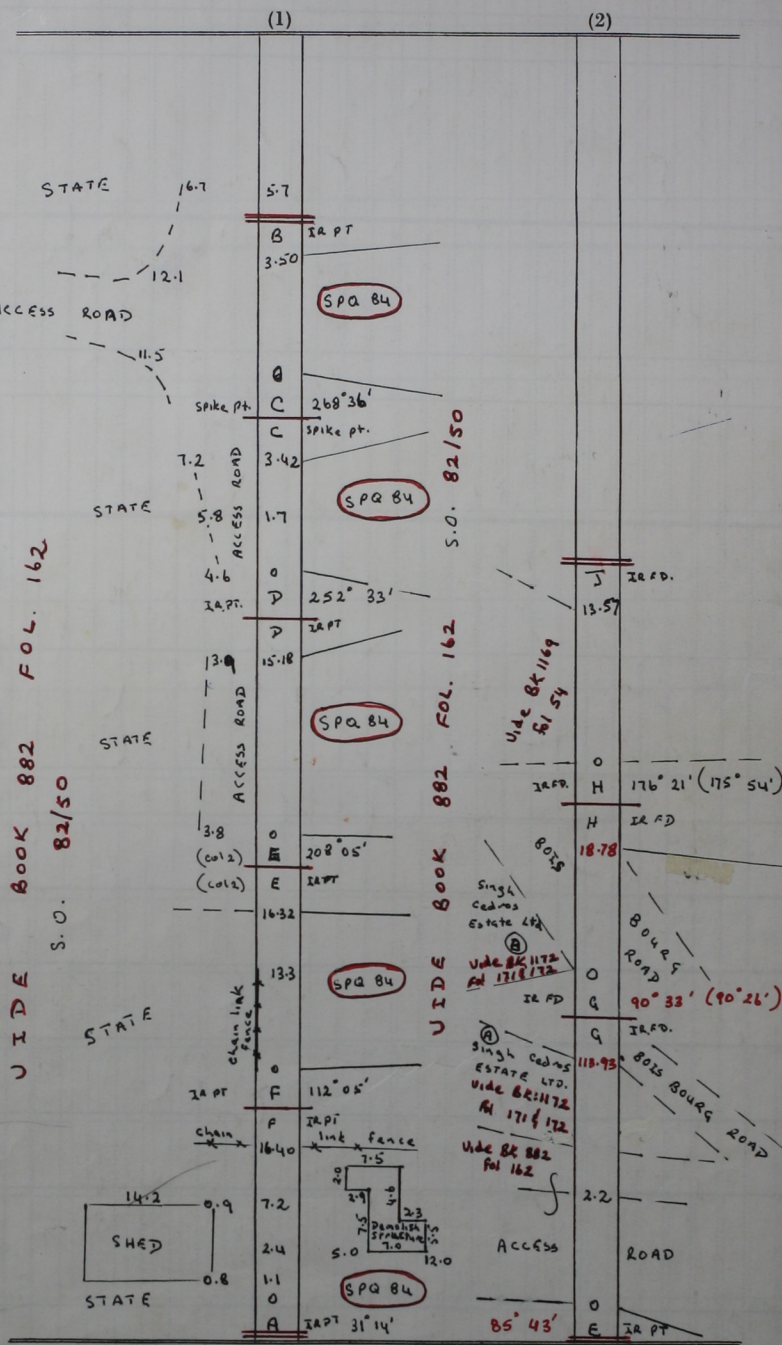 (1)
(2)
STATE
16.7
5.7
B
IR PT
3.50
12.1
SPQ 84
ACCESS ROAD
11.5
0
Spike Pt.
C
268° 36'
C
Spike pt.
7.2
3.42
ACCESS ROAD
SPQ 84
STATE
5.8
1.7
4.6
0
IR.PT.
D
252° 33'
D
IR PT
13.9
15.18
STATE
ACCESS ROAD
SPQ 84
3.8
0
(col 2)
E
208° 05'
(col 2)
E
IR PT
16.32
13.3
SPQ 84
chain link
fence
STATE
0
IR PT
F
112° 05'
F
IR PT
chain
16.40
link fence
7.5
2.0
2.9
4.6
14.2
0.9
7.2
7.5
2.3
SHED
Demolish
Structure
5.5
2.4
5.0
7.0
12.0
0.8
1.1
SPQ 84
STATE
0
A
IR PT
31° 14'
VIDE BOOK 882 FOL. 162
S.O. 82/50
VIDE BOOK 882 FOL. 162
S.O. 82/50
J
IR FD.
13.57
Vide BK 1169
fol 54
0
IR FD.
H
176° 21' (175° 54')
H
IR FD
18.78
BOIS
BOURG
ROAD
Singh
Cedros
Estate Ltd
B
Vide BK 1172
Fol 171 & 172
0
IR FD
G
90° 33' (90° 26')
G
IR.FD.
A
Singh Cedros
ESTATE LTD.
Vide BK:1172
Fol 171 & 172
113.93
BOIS BOURG ROAD
Vide BK 882
Fol 162
2.2
ACCESS
ROAD
0
85° 43'
E
IR PT